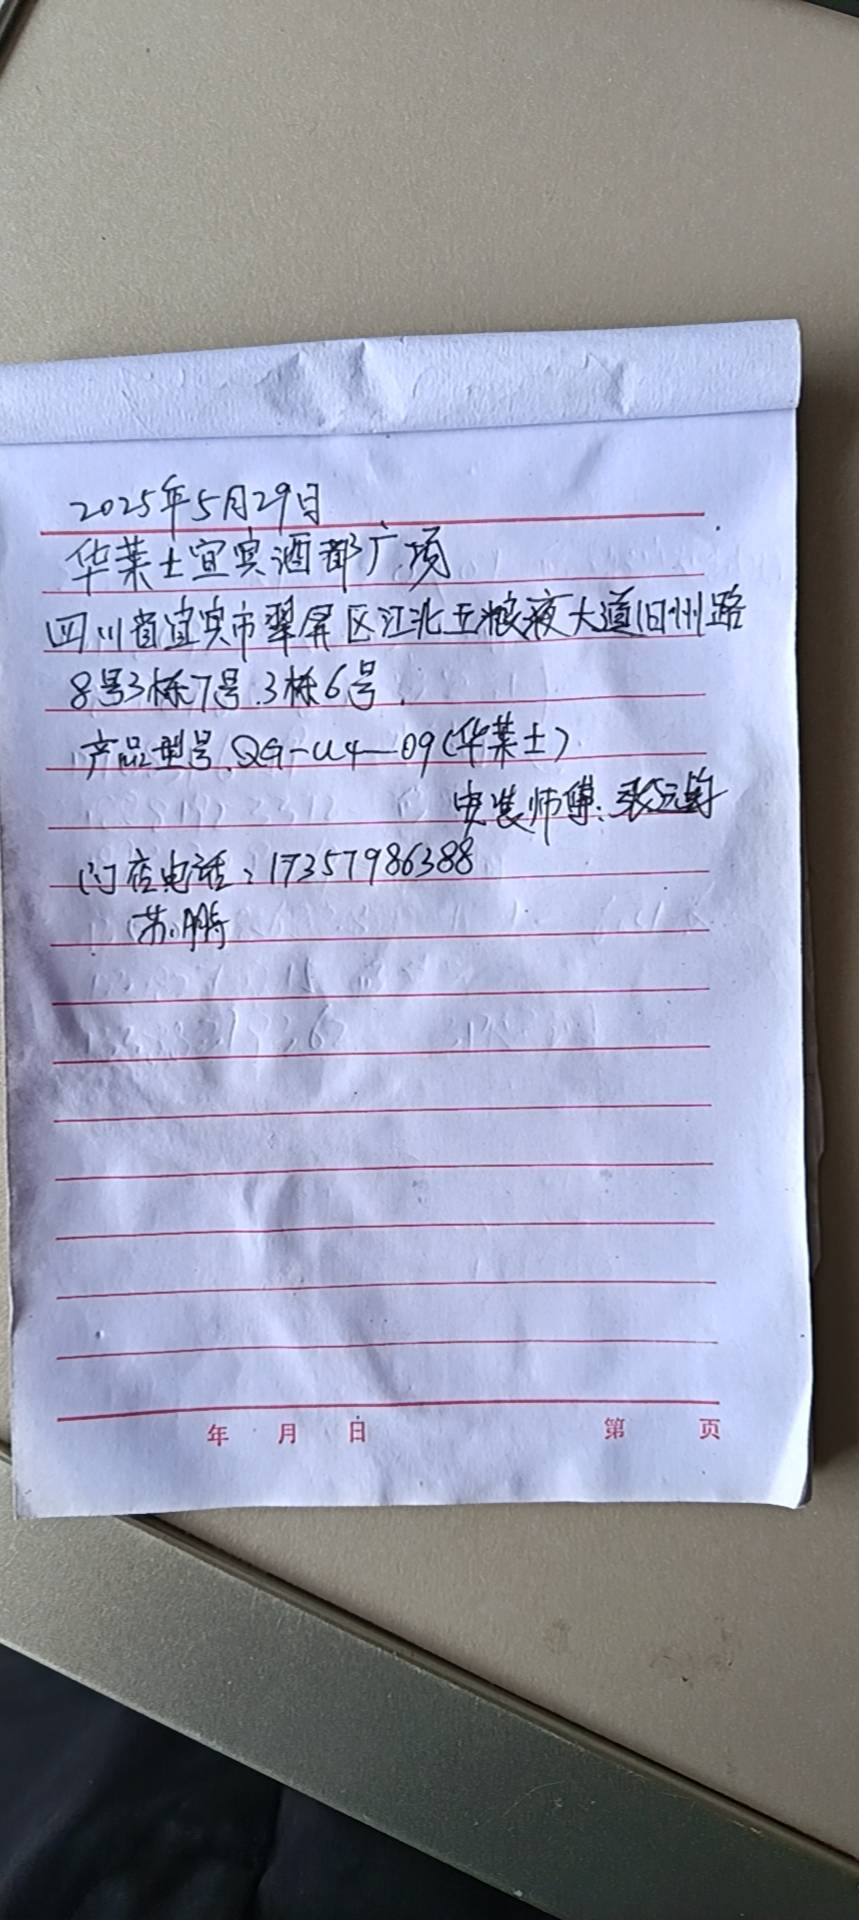 2025年5月29日
华莱士宜宾酒都广项
四川省宜宾市翠屏区江北五粮液大道旧州路
8号3栋7号.3栋6号.
产品型号.QG-U4-09(华莱士)
安装师傅:张元
门店电话:17357986388
苏鹏
年 月 日 第 页